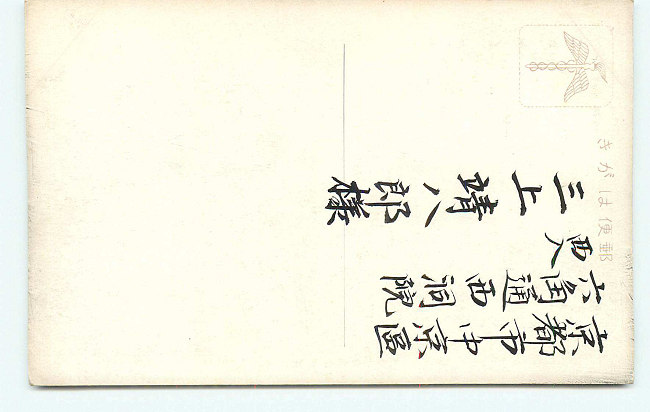 郵便はがき
京都市中京區
六角通西洞院
西入
三上靖八郎様